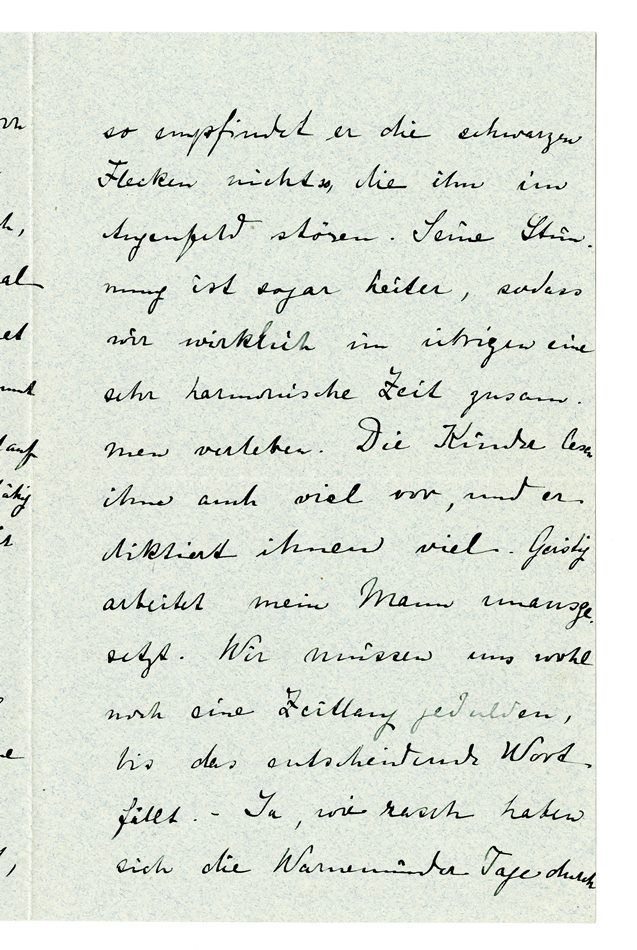 rn
so empfindet er die schwarzen
Flecken nichts, die ihn im
h,
Augenfeld stören. Seine Stim-
al
mung ist sogar heiter, sodass
et
wir wirklich im übrigen eine
mt
sehr harmonische Zeit zusam-
auf
men verleben. Die Kinder lesen
ätig
ihm auch viel vor, und er
diktiert ihnen viel. Geistig
arbeitet mein Mann unausge-
setzt. Wir müssen uns wohl
noch eine Zeitlang gedulden,
e
bis das entscheidende Wort
fällt. - Ja, wie rasch haben
sich die Warnemünder Tage durch